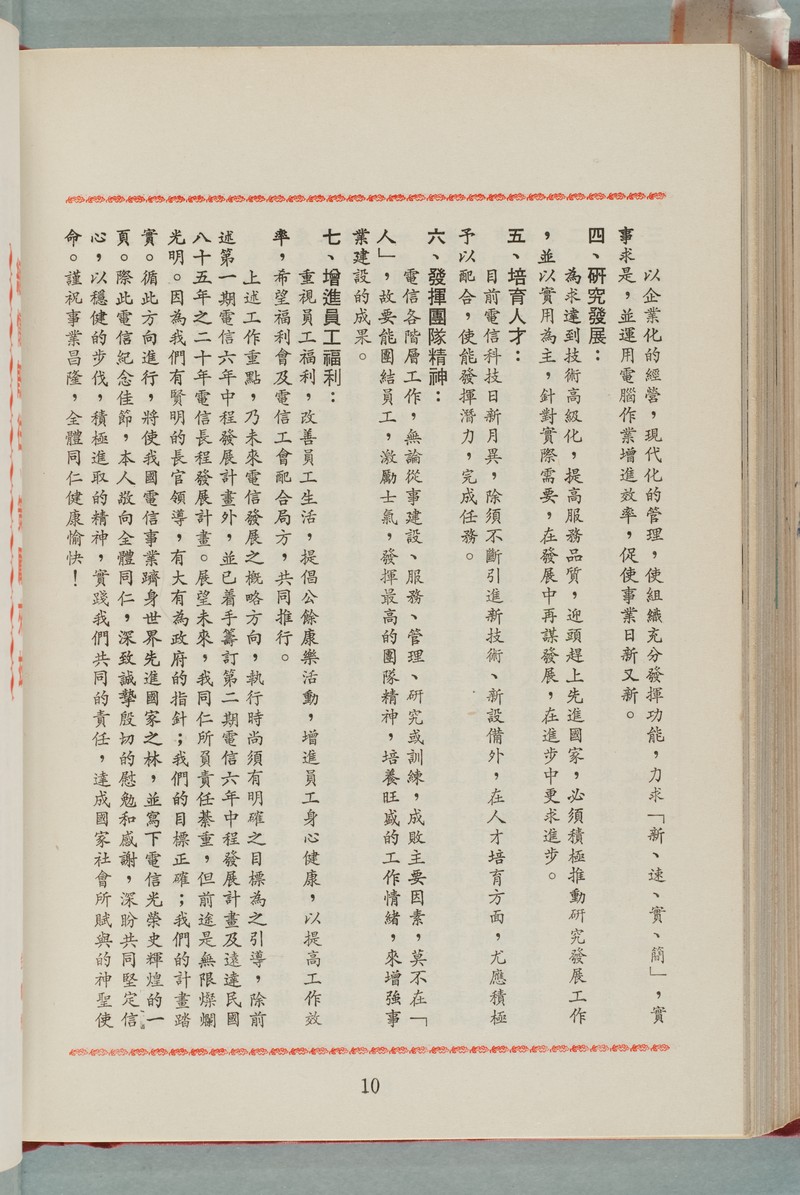 以企業化的經營，現代化的管理，使組織充分發揮功能，力求「新、速、實、簡」，實
事求是，並運用電腦作業增進效率，促使事業日新又新。
四、研究發展：
為求達到技術高級化，提高服務品質，迎頭趕上先進國家，必須積極推動研究發展工作
，並以實用為主，針對實際需要，在發展中再謀發展，在進步中更求進步。
五、培育人才：
目前電信科技日新月異，除須不斷引進新技術、新設備外，在人才培育方面，尤應積極
予以配合，使能發揮潛力，完成任務。
六、發揮團隊精神：
電信各階層工作，無論從事建設、服務、管理、研究或訓練，成敗主要因素，莫不在「
人」，故要能團結員工，激勵士氣，發揮最高的團隊精神，培養旺盛的工作情緒，來增強事
業建設的成果。
七、增進員工福利：
重視員工福利，改善員工生活，提倡公餘康樂活動，增進員工身心健康，以提高工作效
率，希望福利會及電信工會配合局方，共同推行。
上述工作重點，乃未來電信發展之概略方向，執行時尚須有明確之目標為之引導，除前
述第一期電信六年中程發展計畫外，並已着手籌訂第二期電信六年中程發展計畫及遠達民國
八十五年之二十年電信長程發展計畫。展望未來，我同仁所負責任綦重，但前途是無限燦爛
光明。因為我們有賢明的長官領導，有大有為政府的指針；我們的目標正確；我們的計畫踏
實。循此方向進行，將使我國電信事業躋身世界先進國家之林，並寫下電信光榮史輝煌的一
頁。際此電信紀念佳節，本人敬向全體同仁，深致誠摯殷切的慰勉和感謝，深盼共同堅定信
心，以穩健的步伐，積極進取的精神，實踐我們共同的責任，達成國家社會所賦與的神聖使
命。謹祝事業昌隆，全體同仁健康愉快！
10